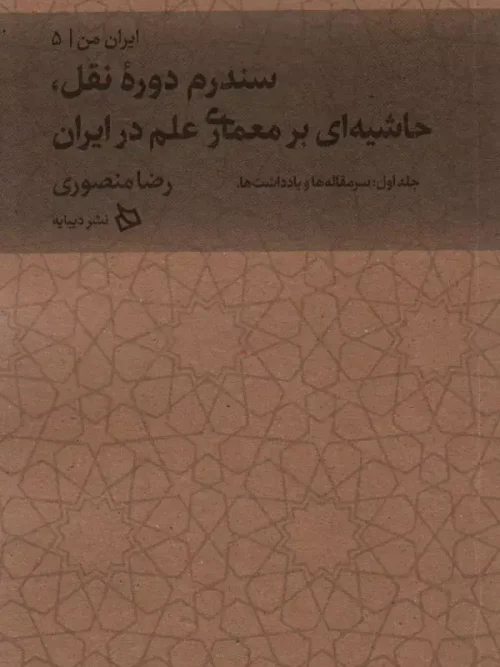 ایران من | ۵
سندرم دورهٔ نقل،
حاشیه‌ای بر معماری علم در ایران
جلد اول: سرمقاله‌ها و یادداشت‌ها.
رضا منصوری
نشر دیبایه